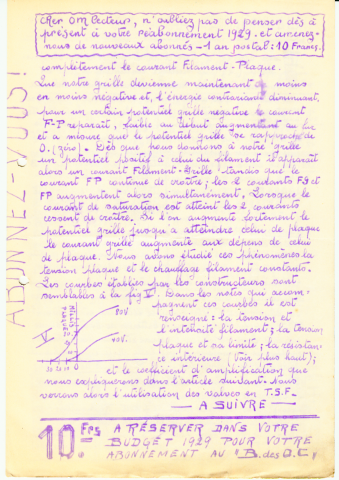 Cher OM Lecteur, n'oubliez pas de penser dès à
présent à votre réabonnement 1929. et amenez-
nous de nouveaux abonnés - 1 an postal: 10 Francs.
ABONNEZ-VOUS!
complètement le courant Filament-Plaque.
Que notre grille devienne maintenant de moins
en moins négative et, l'énergie contrariante diminuant,
pour un certain potentiel grille négative le courant
F-P reparait, faible au début augmentant au fur
et à mesure que le potentiel grille se rapproche de
O. (zéro). Dès que nous donnons à notre grille
un potentiel positif à celui du filament il apparaît
alors un courant Filament-Grille tandis que le
courant FP continue de croître; les 2 courants FG et
FP augmentent alors simultanément. Lorsque le
courant de saturation est atteint les 2 courants
cessent de croître. Si l'on augmente fortement le
potentiel grille jusqu'à atteindre celui de plaque
le courant grille augmente aux dépens de celui
de plaque. Nous avons étudié ces phénomènes la
tension plaque et le chauffage filament constants.
Les courbes établies par les constructeurs sont
semblables à la fig V. Dans les notes qui accom-
pagnent ces courbes il est
renseigné: la tension et
l'intensité filament; la tension
plaque et sa limite; la résistan-
ce intérieure (Voir plus haut);
V
80V.
40V.
et le coefficient d'amplification que
nous expliquerons dans l'article suivant. Nous
verrons alors l'utilisation des valves en T.S.F.
— A SUIVRE —
10.Frs A RÉSERVER DANS VOTRE
BUDGET 1929 POUR VOTRE
ABONNEMENT AU "B. des O.C"